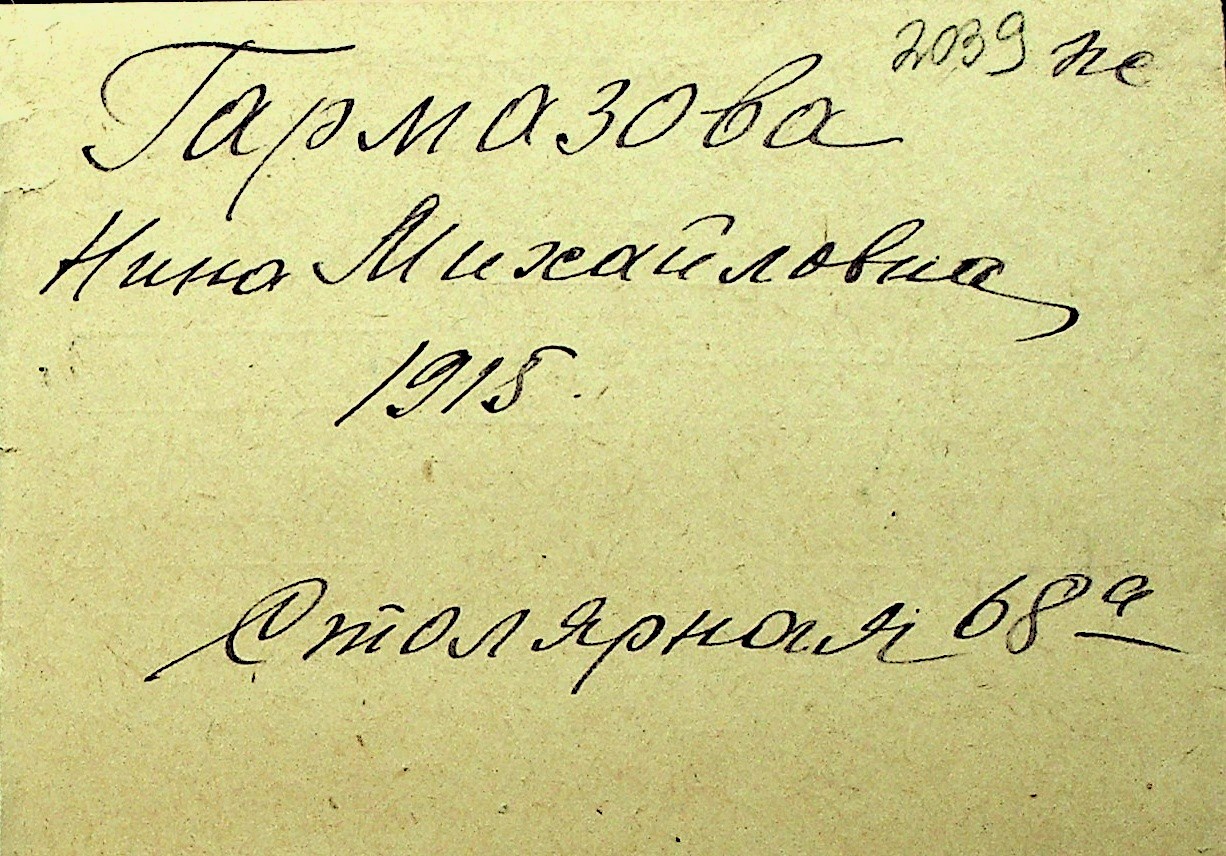 2039 пс
Гармазова
Нина Михайловна
1915.
Столярная 68а